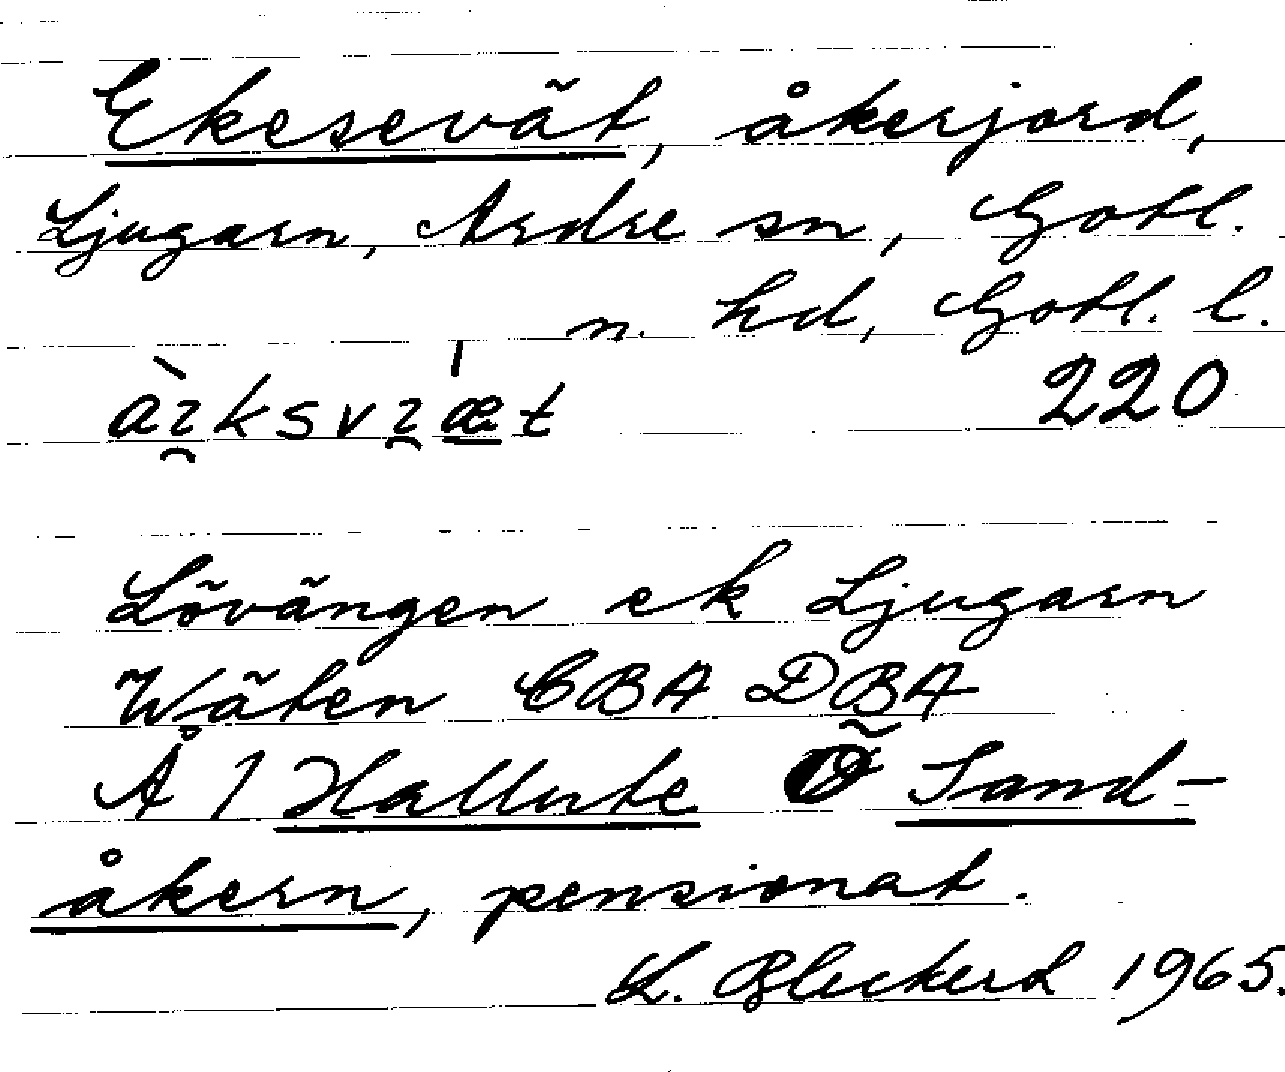 Ekesevät, åkerjord,
Ljugarn, Ardre sn, Gotl.
n. hd, Gotl. l.
220
Lövängen ek Ljugarn
Wäten CBA DBA
Å 1 Hallute Ö Sand-
åkern, pensionat.
L. Bleckerd 1965.